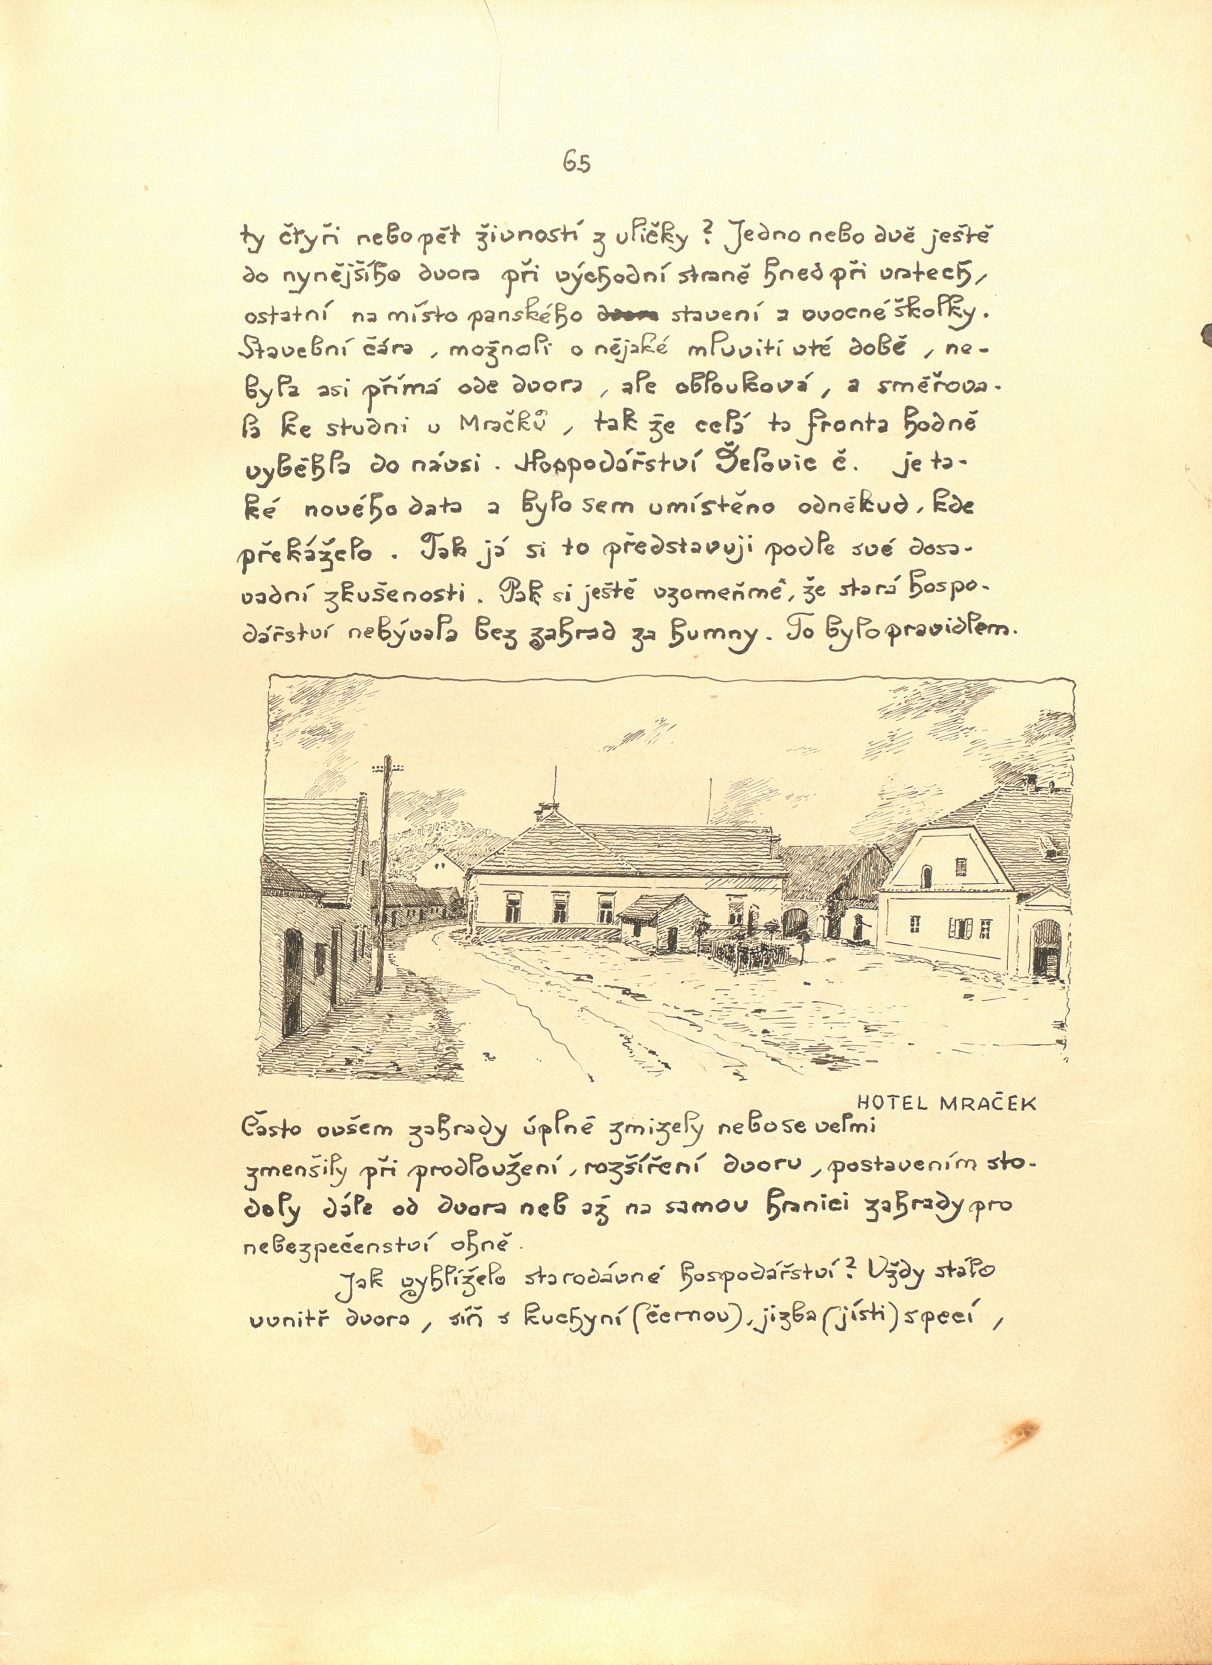 65
ty čtyři nebo pět živností z uličky? Jedno nebo dvě ještě
do nynějšího dvora při východní straně hned při vratech,
ostatní na místo panského dvora stavení a ovocné školky.
Stavební čára, možnoli o nějaké mluviti vté době, ne-
byla asi přímá ode dvora, ale oblouková, a směřova-
la ke studni u Mračků, tak že celá ta fronta hodně
vyběhla do návsi. Hospodářství Šelovic č. je ta-
ké nového data a bylo sem umístěno odněkud, kde
překáželo. Tak já si to představuji podle své dosa-
vadní zkušenosti. Pak si ještě vzomeňmě, že stará hospo-
dářství nebývala bez zahrad za humny. To bylo pravidlem.
HOTEL MRAČEK
Často ovšem zahrady úplně zmizely nebo se velmi
zmenšily při prodloužení, rozšíření dvoru, postavením sto-
doly dále od dvora neb až na samou hranici zahrady pro
nebezpečenství ohně.
Jak vyhlíželo starodávné hospodářství? Vždy stálo
uvnitř dvora, síň s kuchyní (černou), jizba (jísti) s pecí,